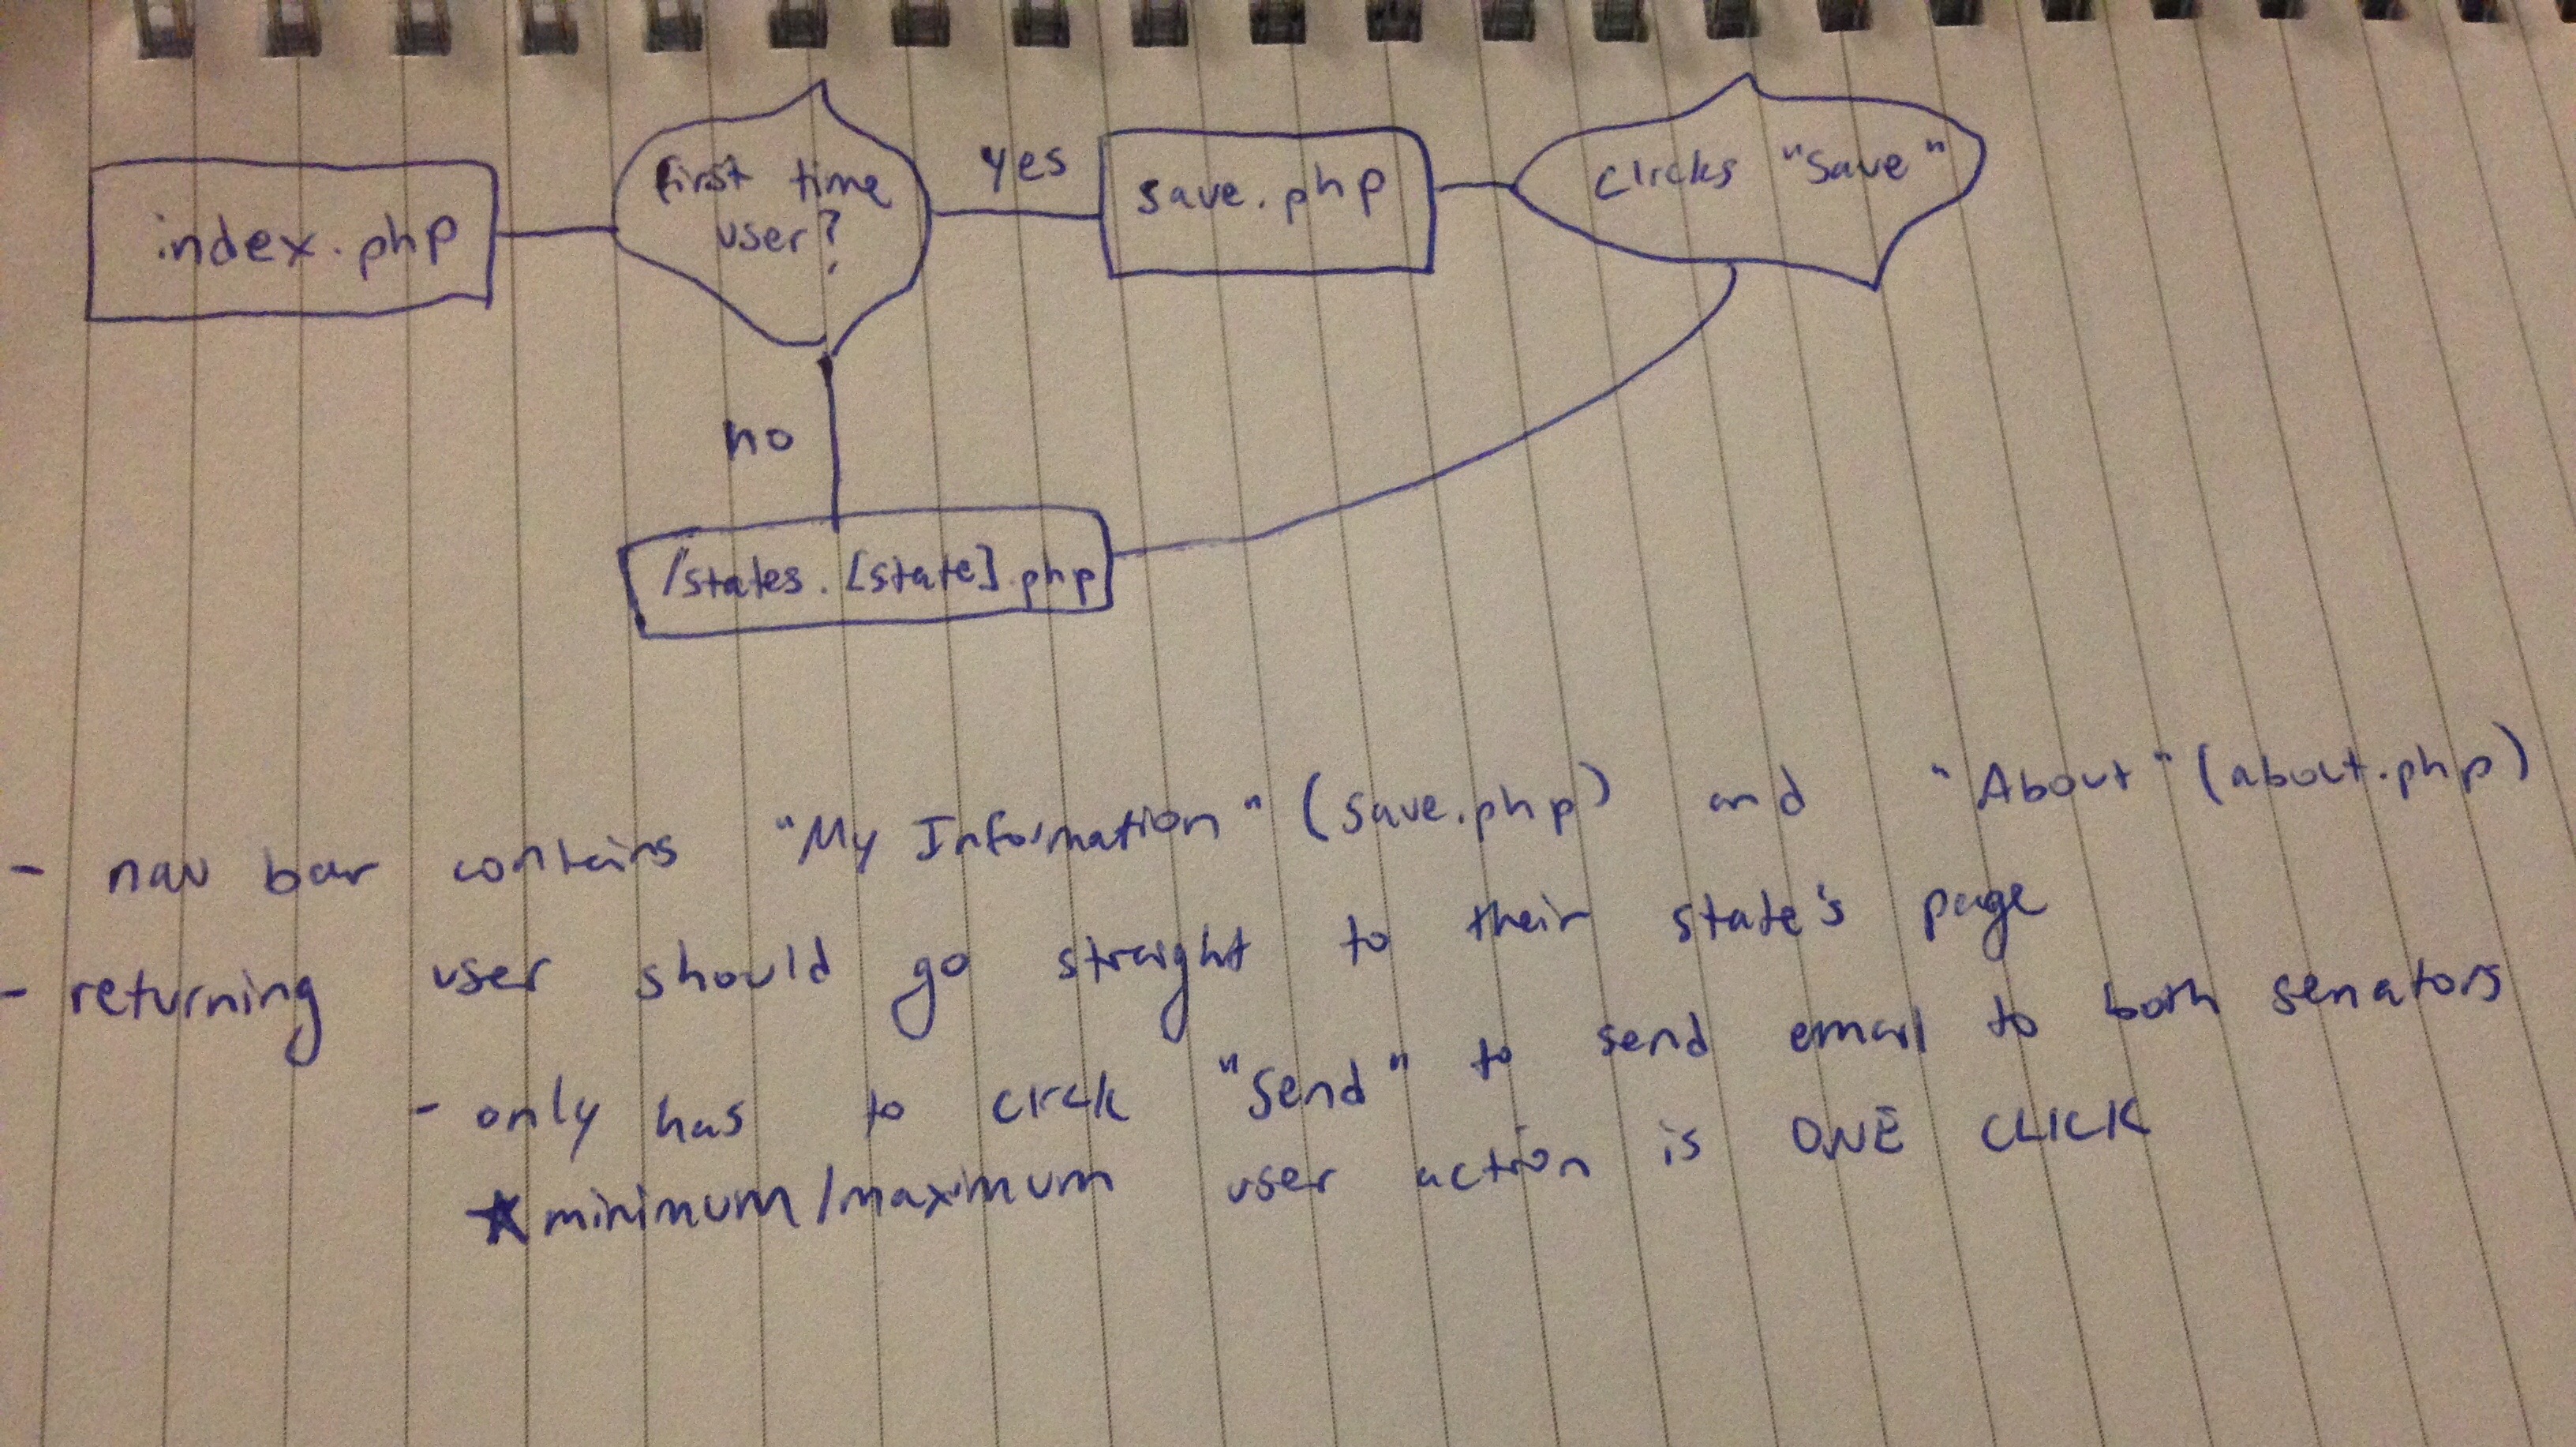 index.php
first time
user?
yes
save.php
clicks "Save"
no
/states.[state].php
- nav bar contains "My Information" (save.php) and "About" (about.php)
- returning user should go straight to their state's page
- only has to click "Send" to send email to both senators
★ minimum/maximum user action is ONE CLICK